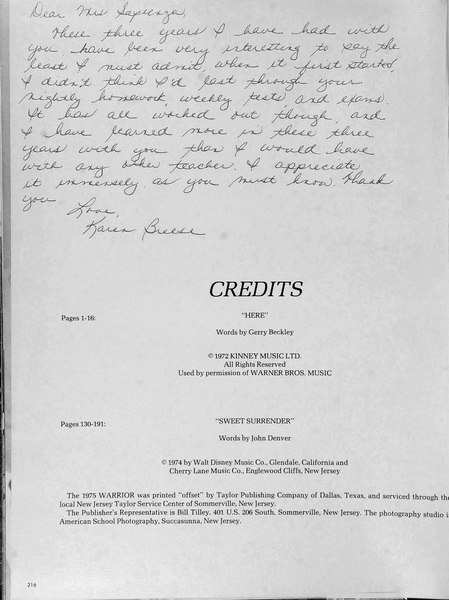 Dear Mrs Sapienza,
These three years I have had with
you have been very interesting to say the
least I must admit, when it first started,
I didn't think I'd last through your
nightly homework, weekly tests, and exams.
It has all worked out though, and
I have learned more in these three
years with you than I would have
with any other teacher. I appreciate
it immensely as you must know. Thank
you
Love,
Karen Breese
CREDITS
Pages 1-16:
"HERE"
Words by Gerry Beckley
© 1972 KINNEY MUSIC LTD.
All Rights Reserved
Used by permission of WARNER BROS. MUSIC
Pages 130-191:
"SWEET SURRENDER"
Words by John Denver
© 1974 by Walt Disney Music Co., Glendale, California and
Cherry Lane Music Co., Englewood Cliffs, New Jersey
The 1975 WARRIOR was printed "offset" by Taylor Publishing Company of Dallas, Texas, and serviced through the
local New Jersey Taylor Service Center of Sommerville, New Jersey.
The Publisher's Representative is Bill Tilley, 401 U.S. 206 South, Sommerville, New Jersey. The photography studio i
American School Photography, Succasunna, New Jersey.
216